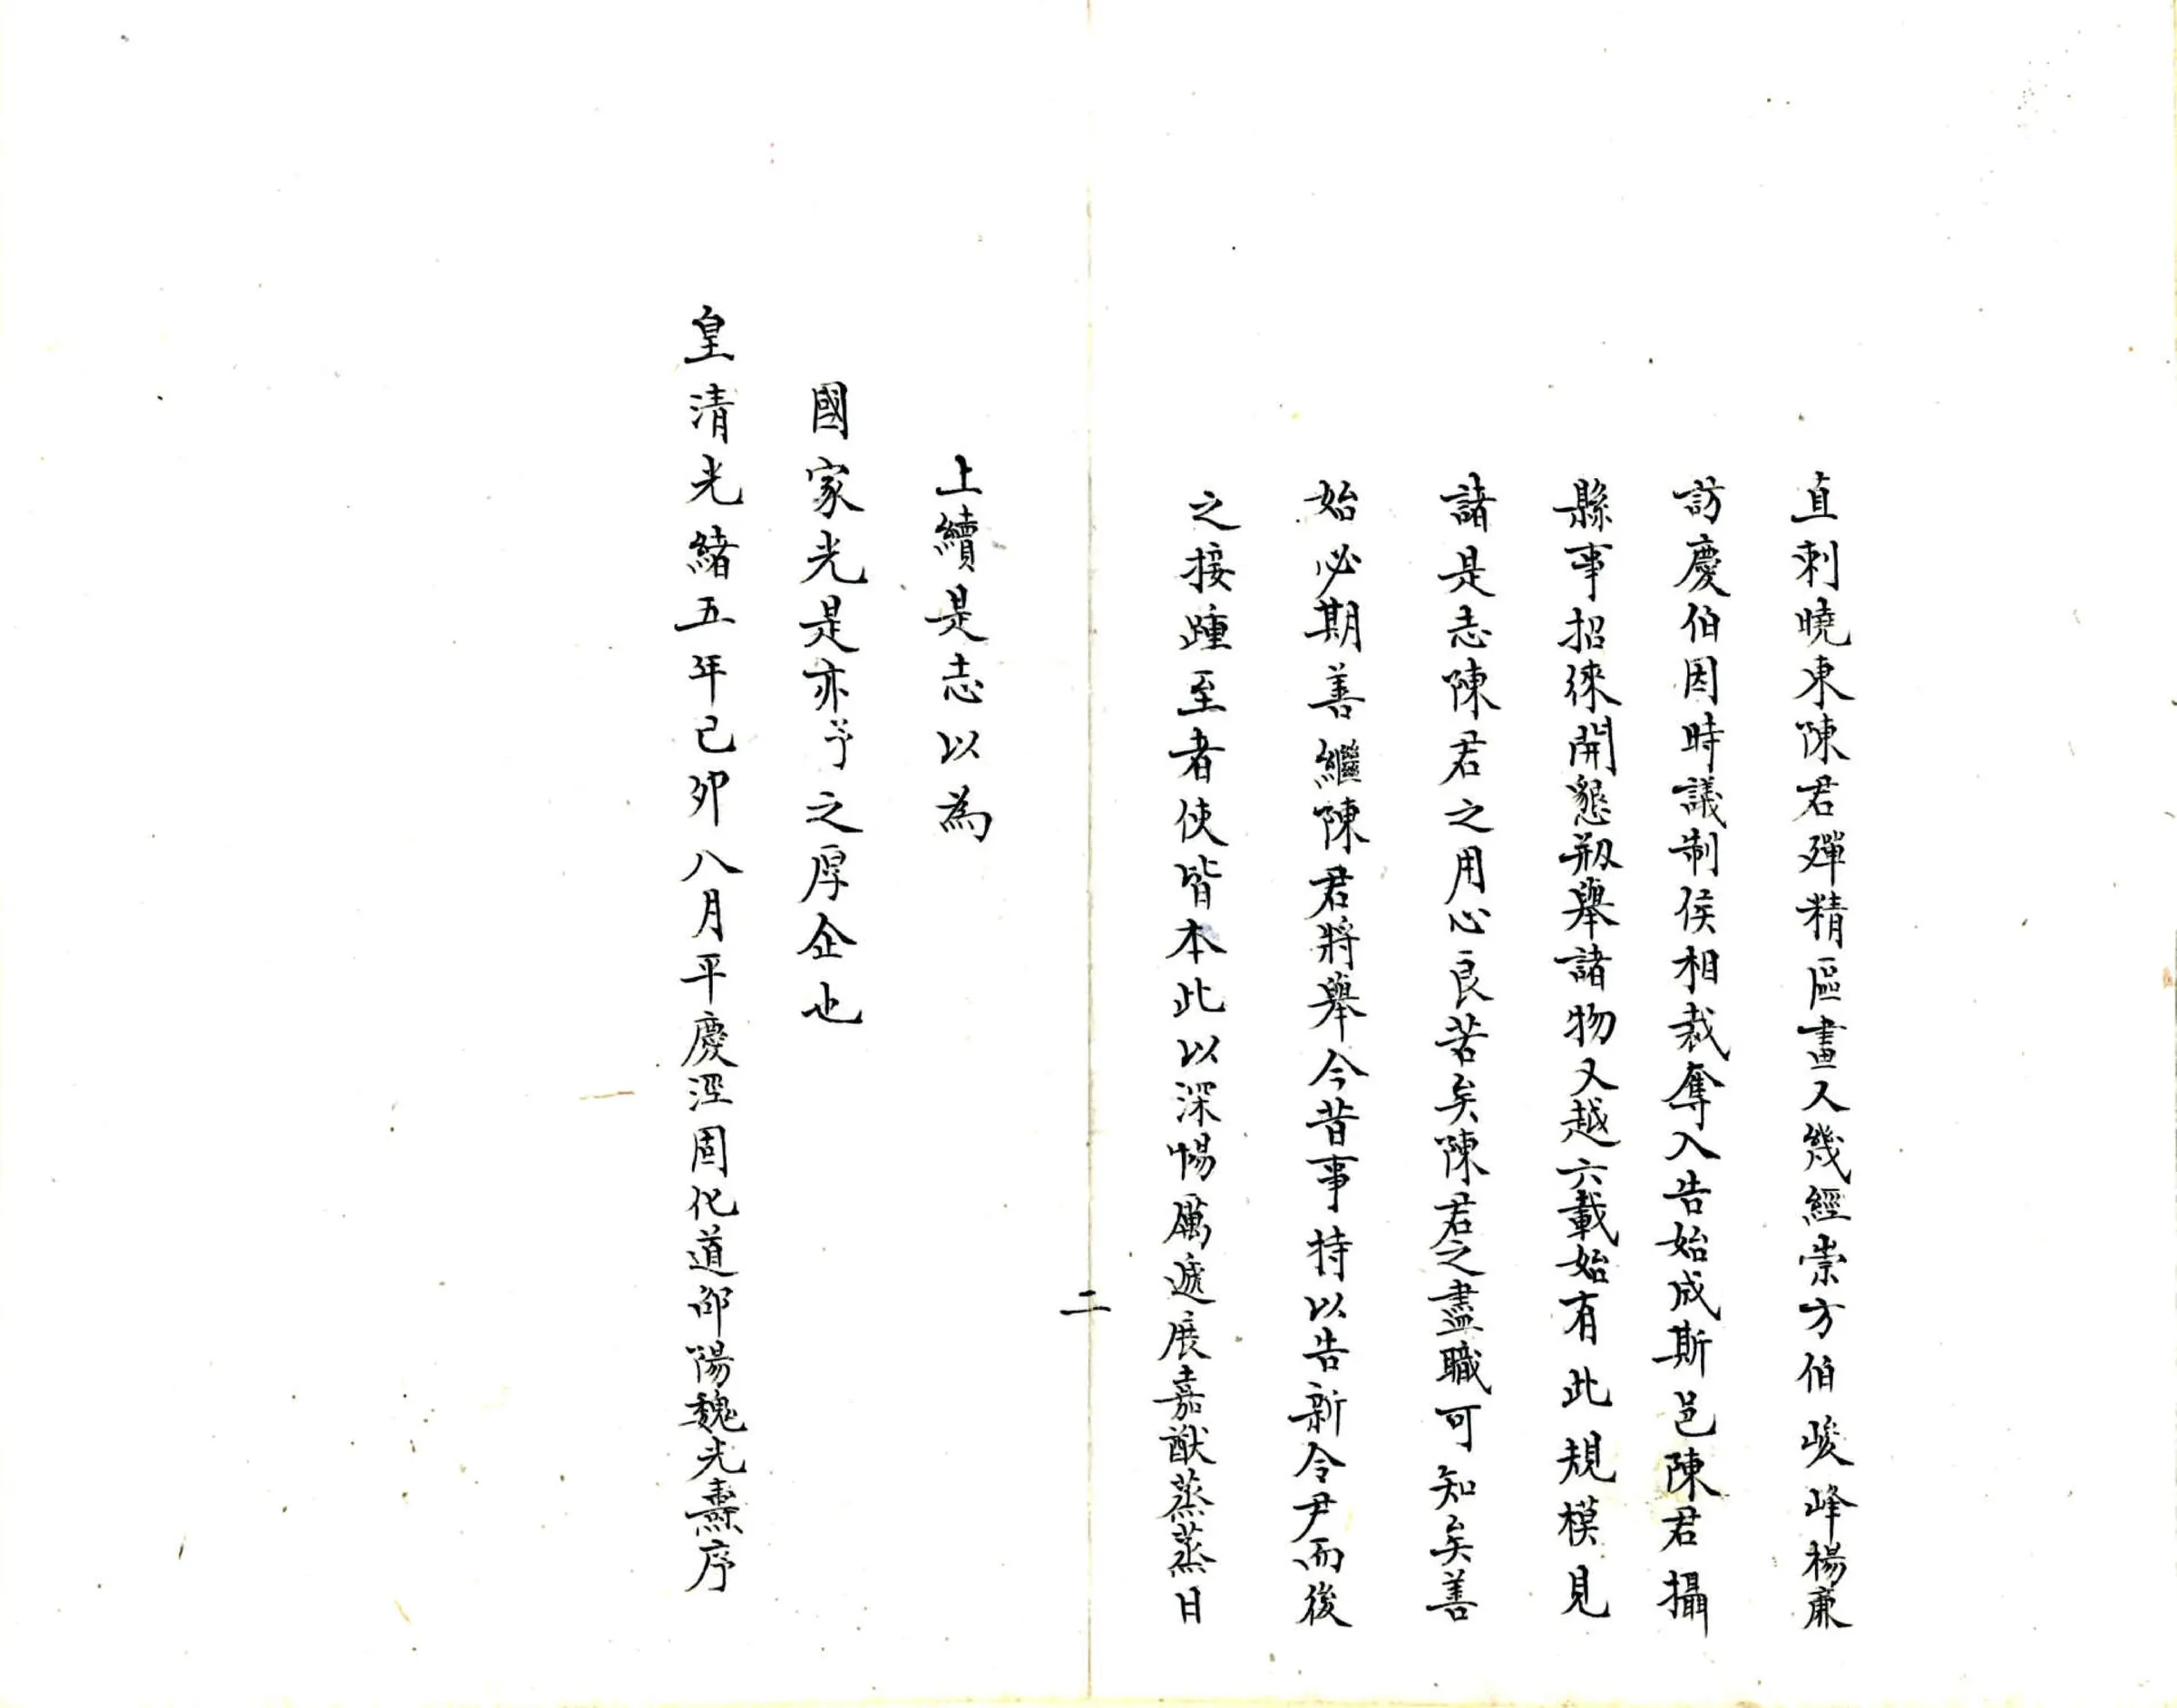 直刺曉東陳君殫精區畫又幾經崇方伯峻峰楊廉
訪慶伯因時議制侯相裁奪入告始成斯邑陳君攝
縣事招徠開懇剏舉諸物又越六載始有此規模見
諸是志陳君之用心良苦矣陳君之盡職可知矣善
始必期善繼陳君將舉今昔事持以告新令尹而後
之接踵至者使皆本此以深惕厲遞展嘉猷蒸蒸日
二
上續是志以為
國家光是亦予之厚企也
皇清光緒五年己夘八月平慶涇固化道邵陽魏光燾序